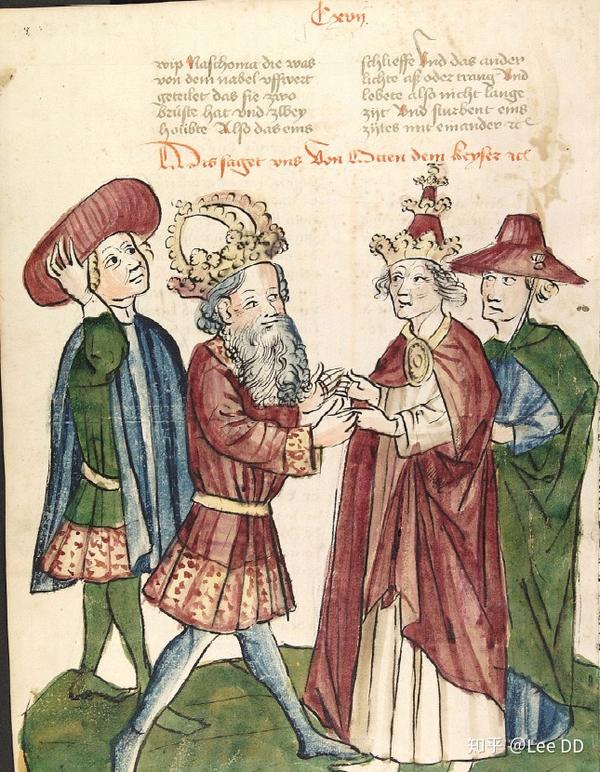 Cxvij
wip Naschoma die was
von dem nabel vffwert
geteilet das sie zwo
brüste hat vnd zwey
höibte Also das eins
schlieffe Vnd das ander
lichte aß oder trang Vnd
lebete also nicht lange
zijt Vnd sturbent eins
zijtes mit einander ⁊c
Dis saget vns Von Otten dem keyser ⁊c
知乎 @Lee DD